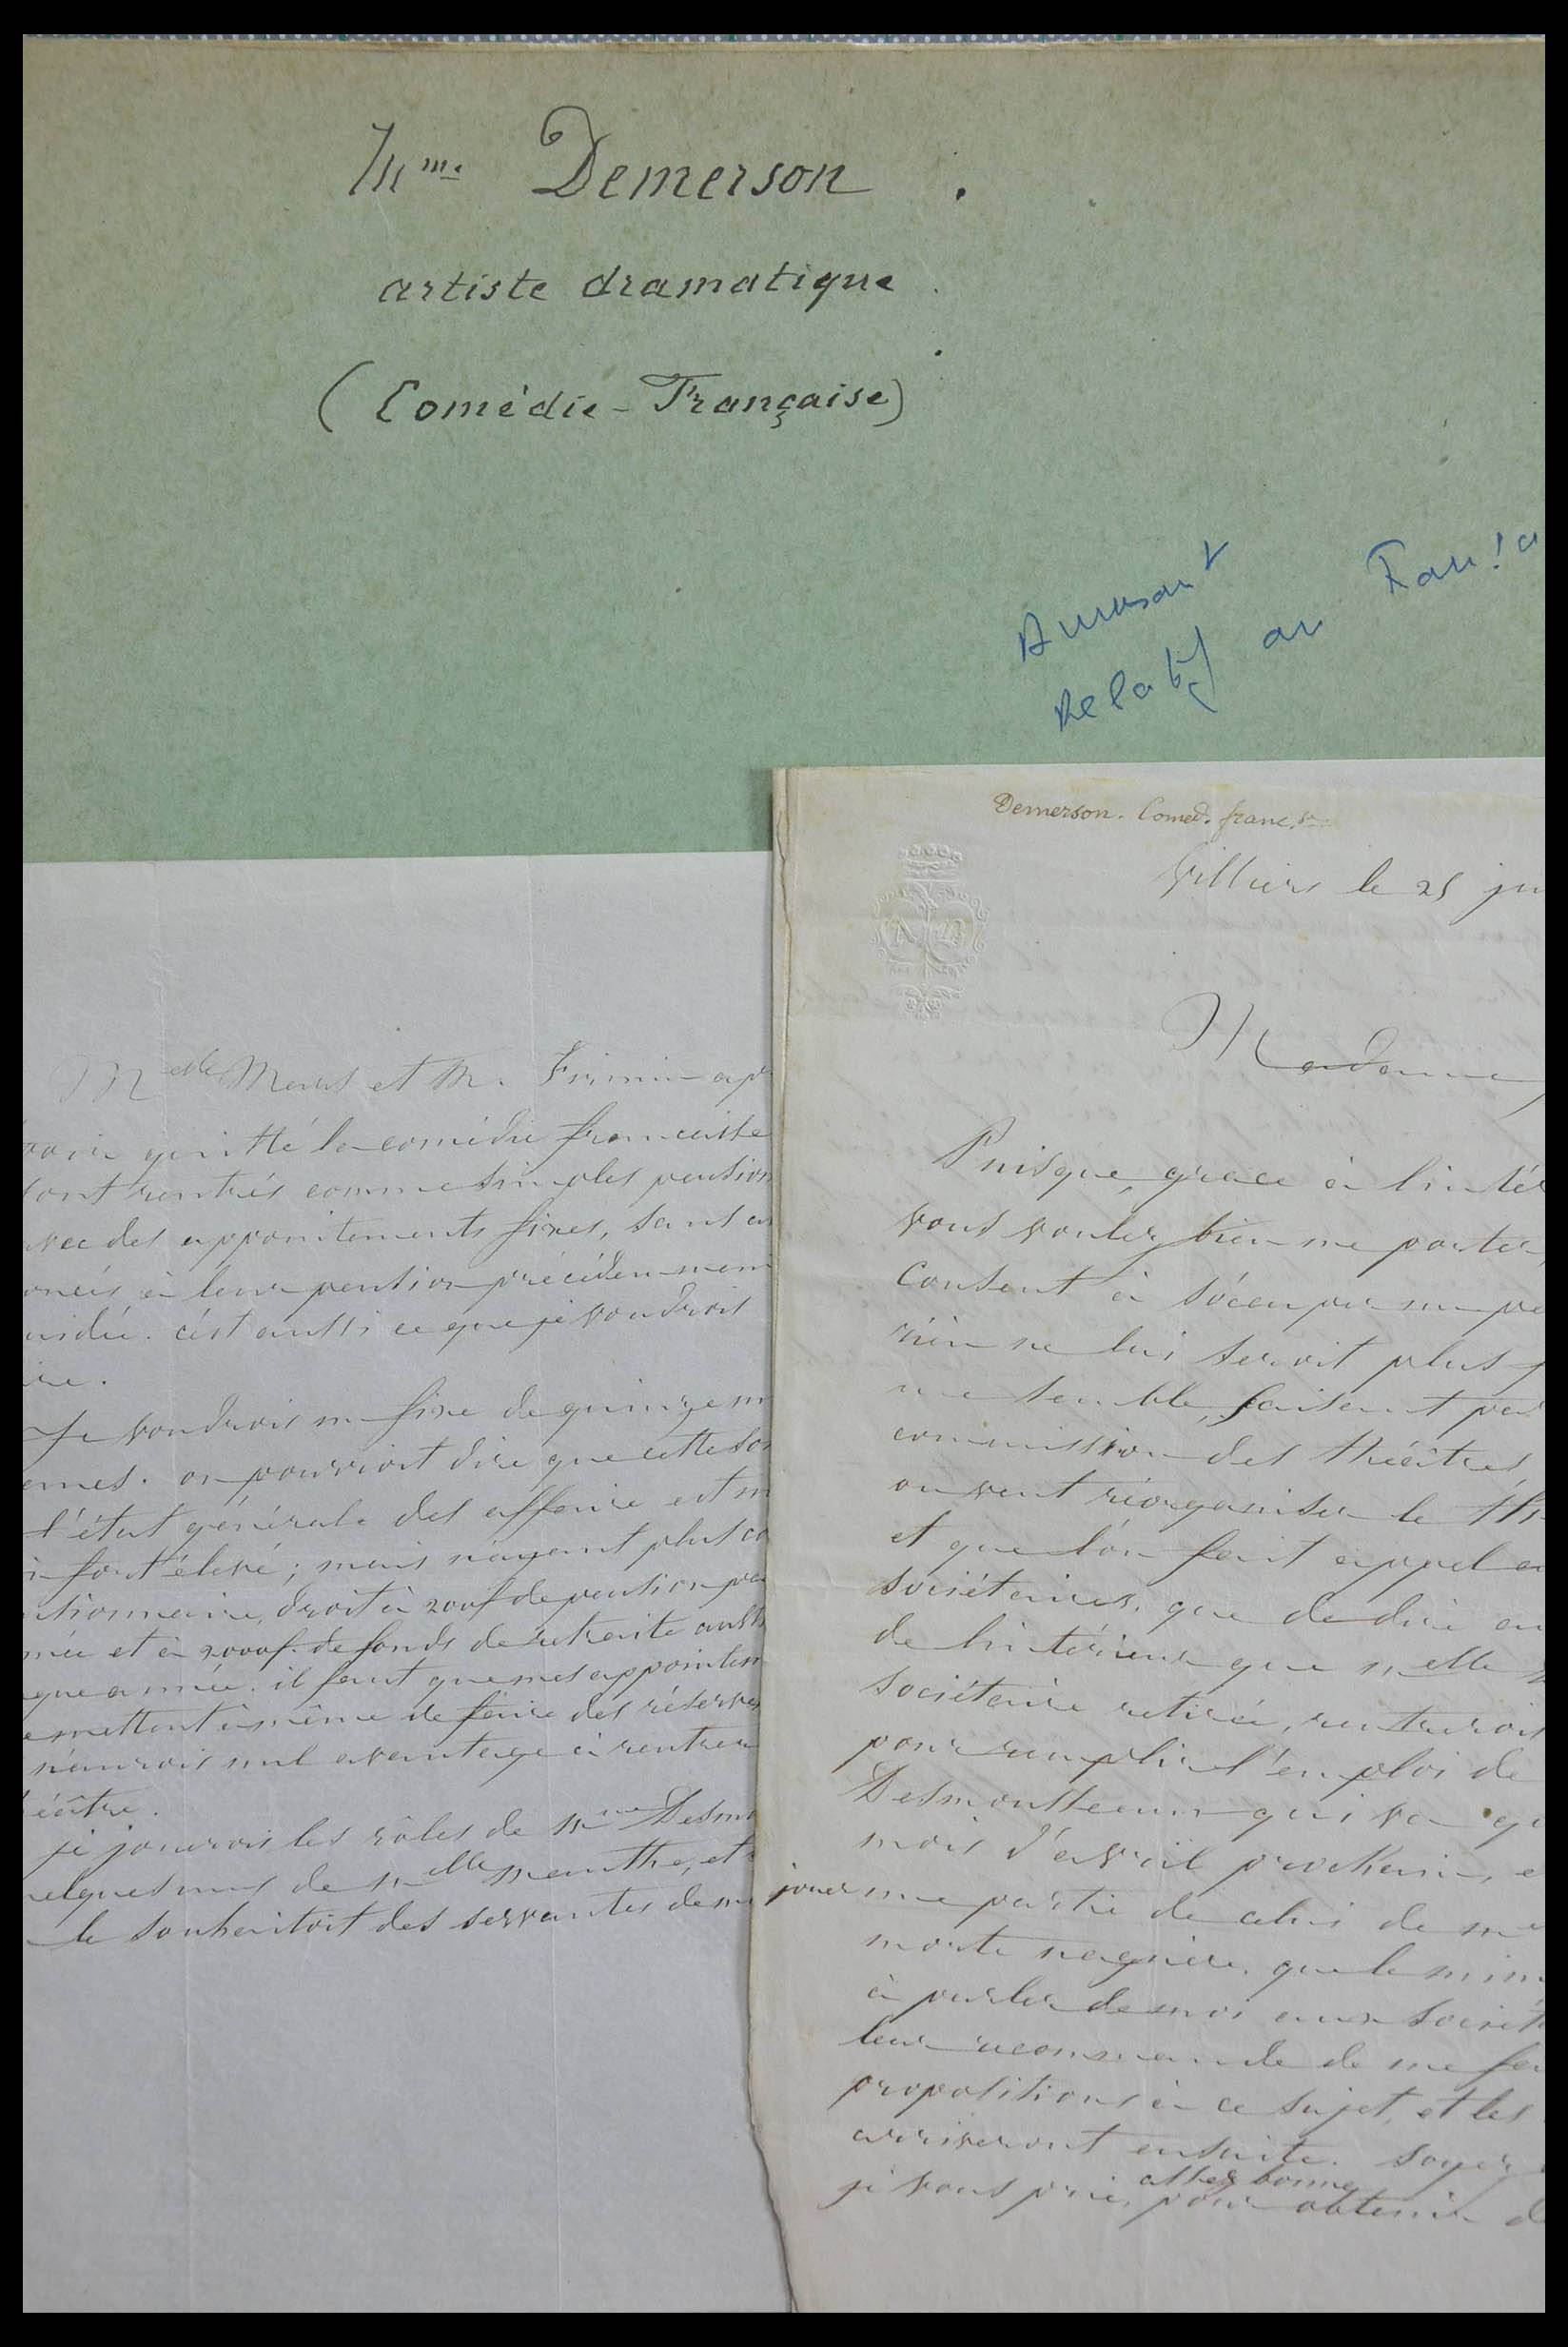 Mme Demerson.
artiste dramatique.
(Comédie-Française)
Amusant
Relatif au
Demerson. Coméd. franc.se
Villiers le 25 ju
Madame
Puisque, grace à l'intér
vous voulez bien me porter,
consent à s'occuper un pe
rien ne lui seroit plus f
me semble, faisant par
commission des théâtres,
on veut réorganiser le th
et que l'on fait appel a
sociétaires, que de dire au
de l'intérieur que melle
sociétaire retirée, rentreroit
pour remplir l'emploi de
Desmousseaux qui va q
mois d'avril prochain, e
jouer une partie de celui de m
morte naguère, que le mini
à parler de moi aux sociét
leur recommande de me fai
propositions à ce sujet, et les
arriveront ensuite. soyez
assez bonne
je vous prie, pour obtenir d
Melle Mars et M. Firmin ap
avoir quitté la comédie francaise
sont rentrés comme simples pension
avec des appointements fixes, sans
oncés à leur pension précédemmen
uidée. c'est aussi ce que je voudrois
ire.
Je voudrois un fixe de quinze m
emes. on pourroit dire que cette so
l'état générale des affaire est m
fort élevé; mais n'ayant plus co
tionnaire, droit à 200f de pension pa
née et à 2000f. de fonds de retraite auss
que année. il faut que mes appointem
e mettent à même de faire des réserves
n'aurois nul avantage à rentrer
éâtre.
je jouerois les rôles de Mme Desmo
uelques uns de melle mante, et
le souhaitoit des servantes de m